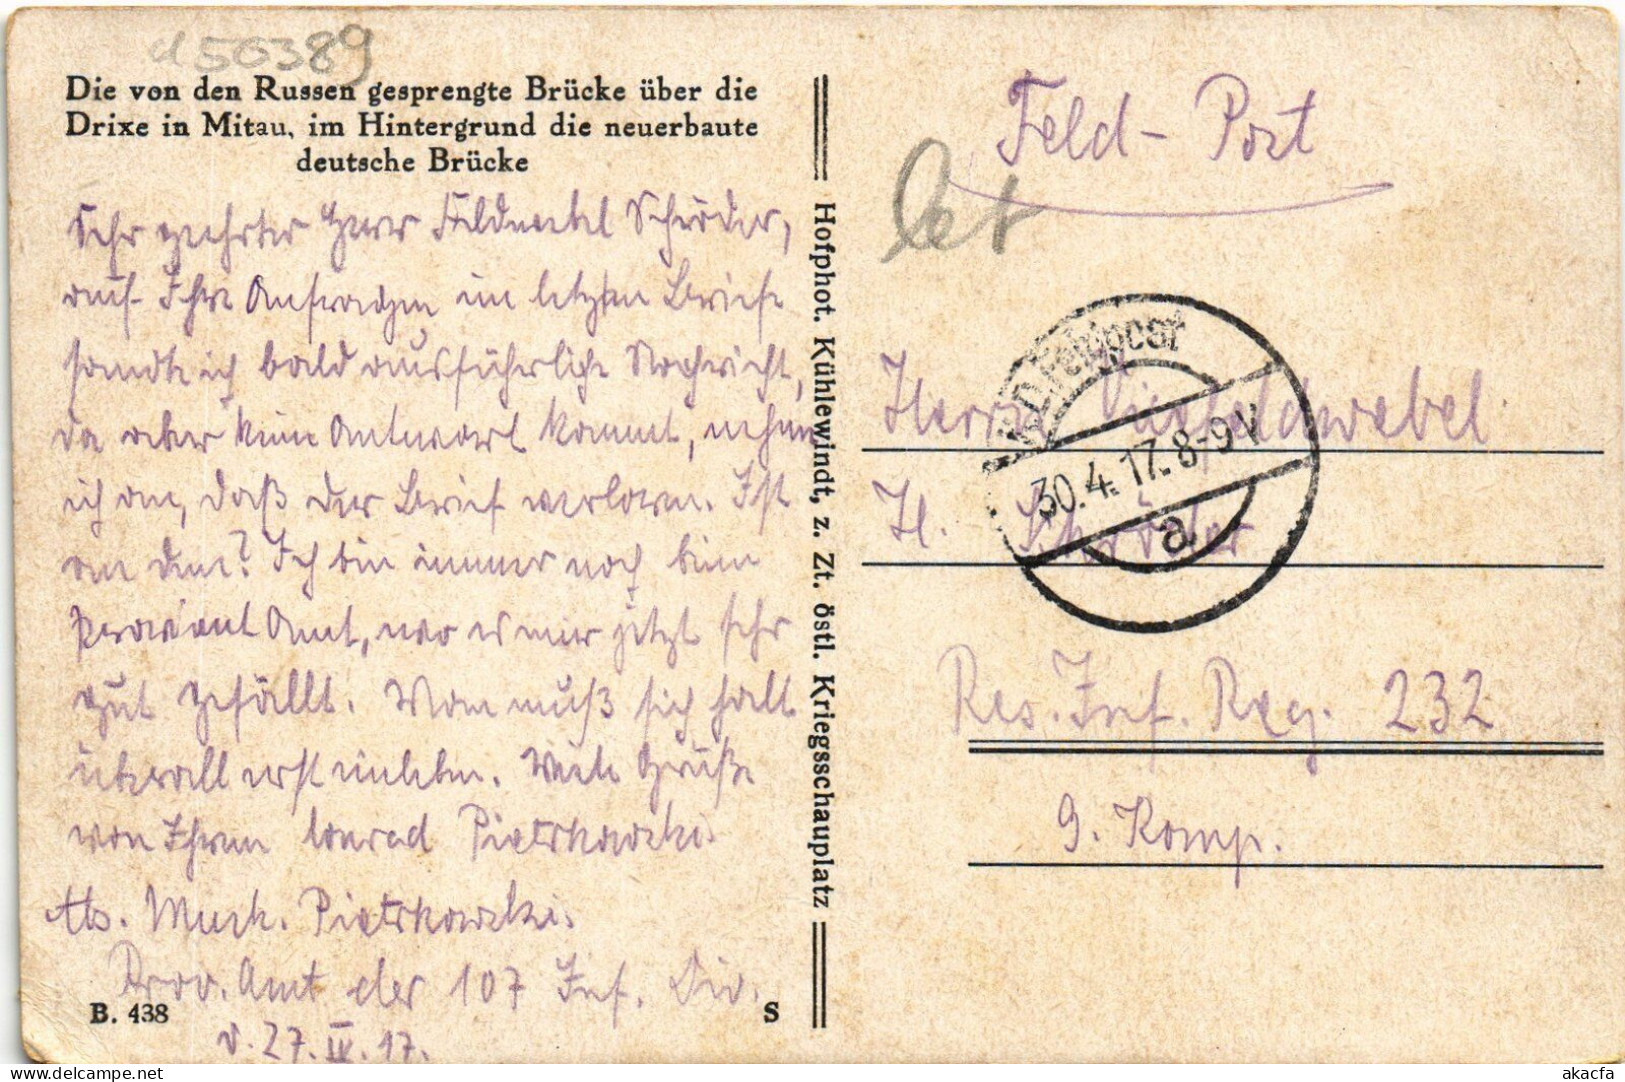 d50389
Die von den Russen gesprengte Brücke über die
Drixe in Mitau, im Hintergrund die neuerbaute
deutsche Brücke
Sehr geehrter Herr Feldwebel Schröder,
auf Ihre Anfragen im letzten Briefe
sandte ich bald ausführliche Nachricht,
da aber keine Antwort kommt, nehme
ich an, daß der Brief verloren. Ist
an dem? Ich bin immer noch beim
Proviant Amt, wo es mir jetzt sehr
gut gefällt. Man muß sich halt
überall erst einleben. Viele Grüße
von Ihrem Conrad Pietrkowski.
Abs. Musk. Pietrkowski.
Prov. Amt der 107 Inf. Div.
v. 27. IV. 17.
B. 438
S
Hofphot. Kühlewindt, z. Zt. östl. Kriegsschauplatz
Feld-Post
let
K.D. Feldpost
30.4.17. 8-9 V
a
Herrn Vizefeldwebel
H. Schröder
Res. Inf. Reg. 232
9. Komp.
akacfa
delcampe.net